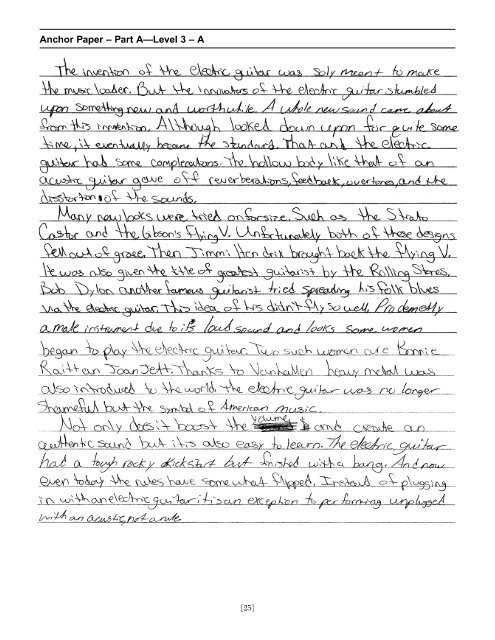 Anchor Paper – Part A—Level 3 – A
The invention of the electric guitar was soly meant to make
the music louder. But the innovators of the electric guitar stumbled
upon something new and worthwhile. A whole new sound came about
from this invention. Although looked down upon for quite some
time, it eventually became the standard. That and the electric
guitar had some complecations. The hollow body like that of an
acustic guitar gave off reverberations, feedback, overtones, and the
disstortion of the sounds.
Many new looks were tried on for size. Such as the Strato
Castor and the Gibson's Flying V. Unfortunately both of these designs
fell out of grace. Then Jimmi Hendrix brought back the flying V.
He was also given the title of greatest guitarist by the Rolling Stones.
Bob Dylon another famous guitarist tried spreading his folk blues
via the electric guitar. This idea of his didn't fly so well.
a male instrument due to its loud sound and looks some women
began to play the electric guitar. Two such women are Bonnie
Raitt an Joan Jett. Thanks to Vanhallen heavy metal was
also introduced to the world. The electric guitar was no longer
shameful but the symbol of American music.
Not only does it boost the volume and create an
authentic sound but it is also easy to learn. The electric guitar
had a tough rocky kickstart but finished with a bang. And now
even today the rules have somewhat flipped. Instead of plugging
in with an electric guitar it is an exception to performing unplugged
with an acustic, not a rule.
[25]